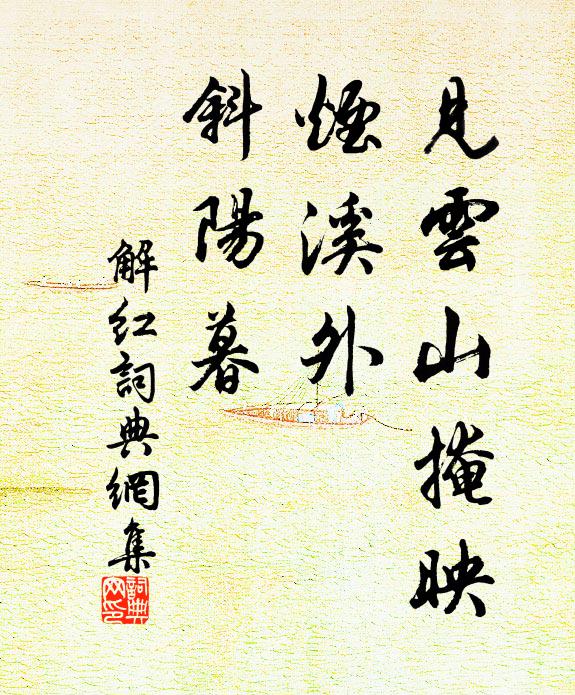 見雲山掩映
煙溪外
斜陽暮
解紅詞典網集
詞典
网印